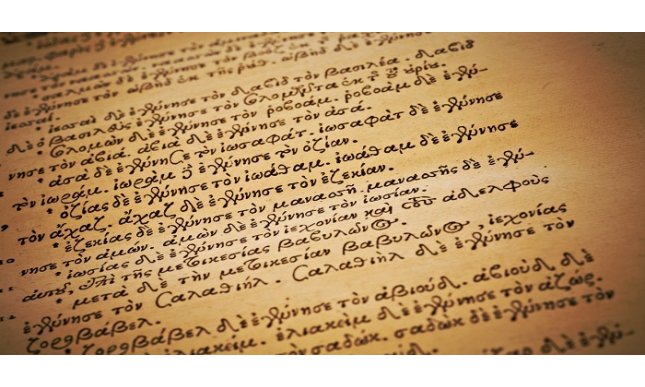 δὲ ἐγέννησε τὸν ὠβὴδ ἐκ τῆς ῥούθ. ὠβὴδ δὲ ἐγέννησε
ἰεσσαί.
ἰεσσαὶ δὲ ἐγέννησε τὸν δαβὶδ τὸν βασιλέα. δαβὶδ
δὲ ὁ βασιλεὺς ἐγέννησε τὸν σολομῶντα ἐκ τῆς τοῦ οὐρίου.
σολομὼν δὲ ἐγέννησε τὸν ῥοβοάμ. ῥοβοὰμ δὲ ἐγέν-
νησε τὸν ἀβιά. ἀβιὰ δὲ ἐγέννησε τὸν ἀσά.
ἀσὰ δὲ ἐγέννησε τὸν ἰωσαφάτ. ἰωσαφὰτ δὲ ἐγέννησε
τὸν ἰωράμ. ἰωρὰμ δὲ ἐγέννησε τὸν ὀζίαν.
ὀζίας δὲ ἐγέννησε τὸν ἰωάθαμ. ἰωάθαμ δὲ ἐγέννησε
τὸν ἄχαζ. ἄχαζ δὲ ἐγέννησε τὸν ἐζεκίαν.
ἐζεκίας δὲ ἐγέννησε τὸν μανασσῆ. μανασσῆς δὲ ἐγέν-
νησε τὸν ἀμών. ἀμὼν δὲ ἐγέννησε τὸν ἰωσίαν.
ἰωσίας δὲ ἐγέννησε τὸν ἰεχονίαν καὶ τοὺς ἀδελφοὺς
αὐτοῦ, ἐπὶ τῆς μετοικεσίας βαβυλῶνος.
μετὰ δὲ τὴν μετοικεσίαν βαβυλῶνος, ἰεχονίας
ἐγέννησε τὸν Σαλαθιήλ. Σαλαθιὴλ δὲ ἐγέννησε τὸν
ζοροβάβελ.
ζοροβάβελ δὲ ἐγέννησε τὸν ἀβιούδ. ἀβιοὺδ δὲ
ἐλιακείμ. ἐλιακεὶμ δὲ ἐγέννησε τὸν ἀζώρ.
τὸν σαδώκ. σαδὼκ δὲ ἐγέννησε τὸν